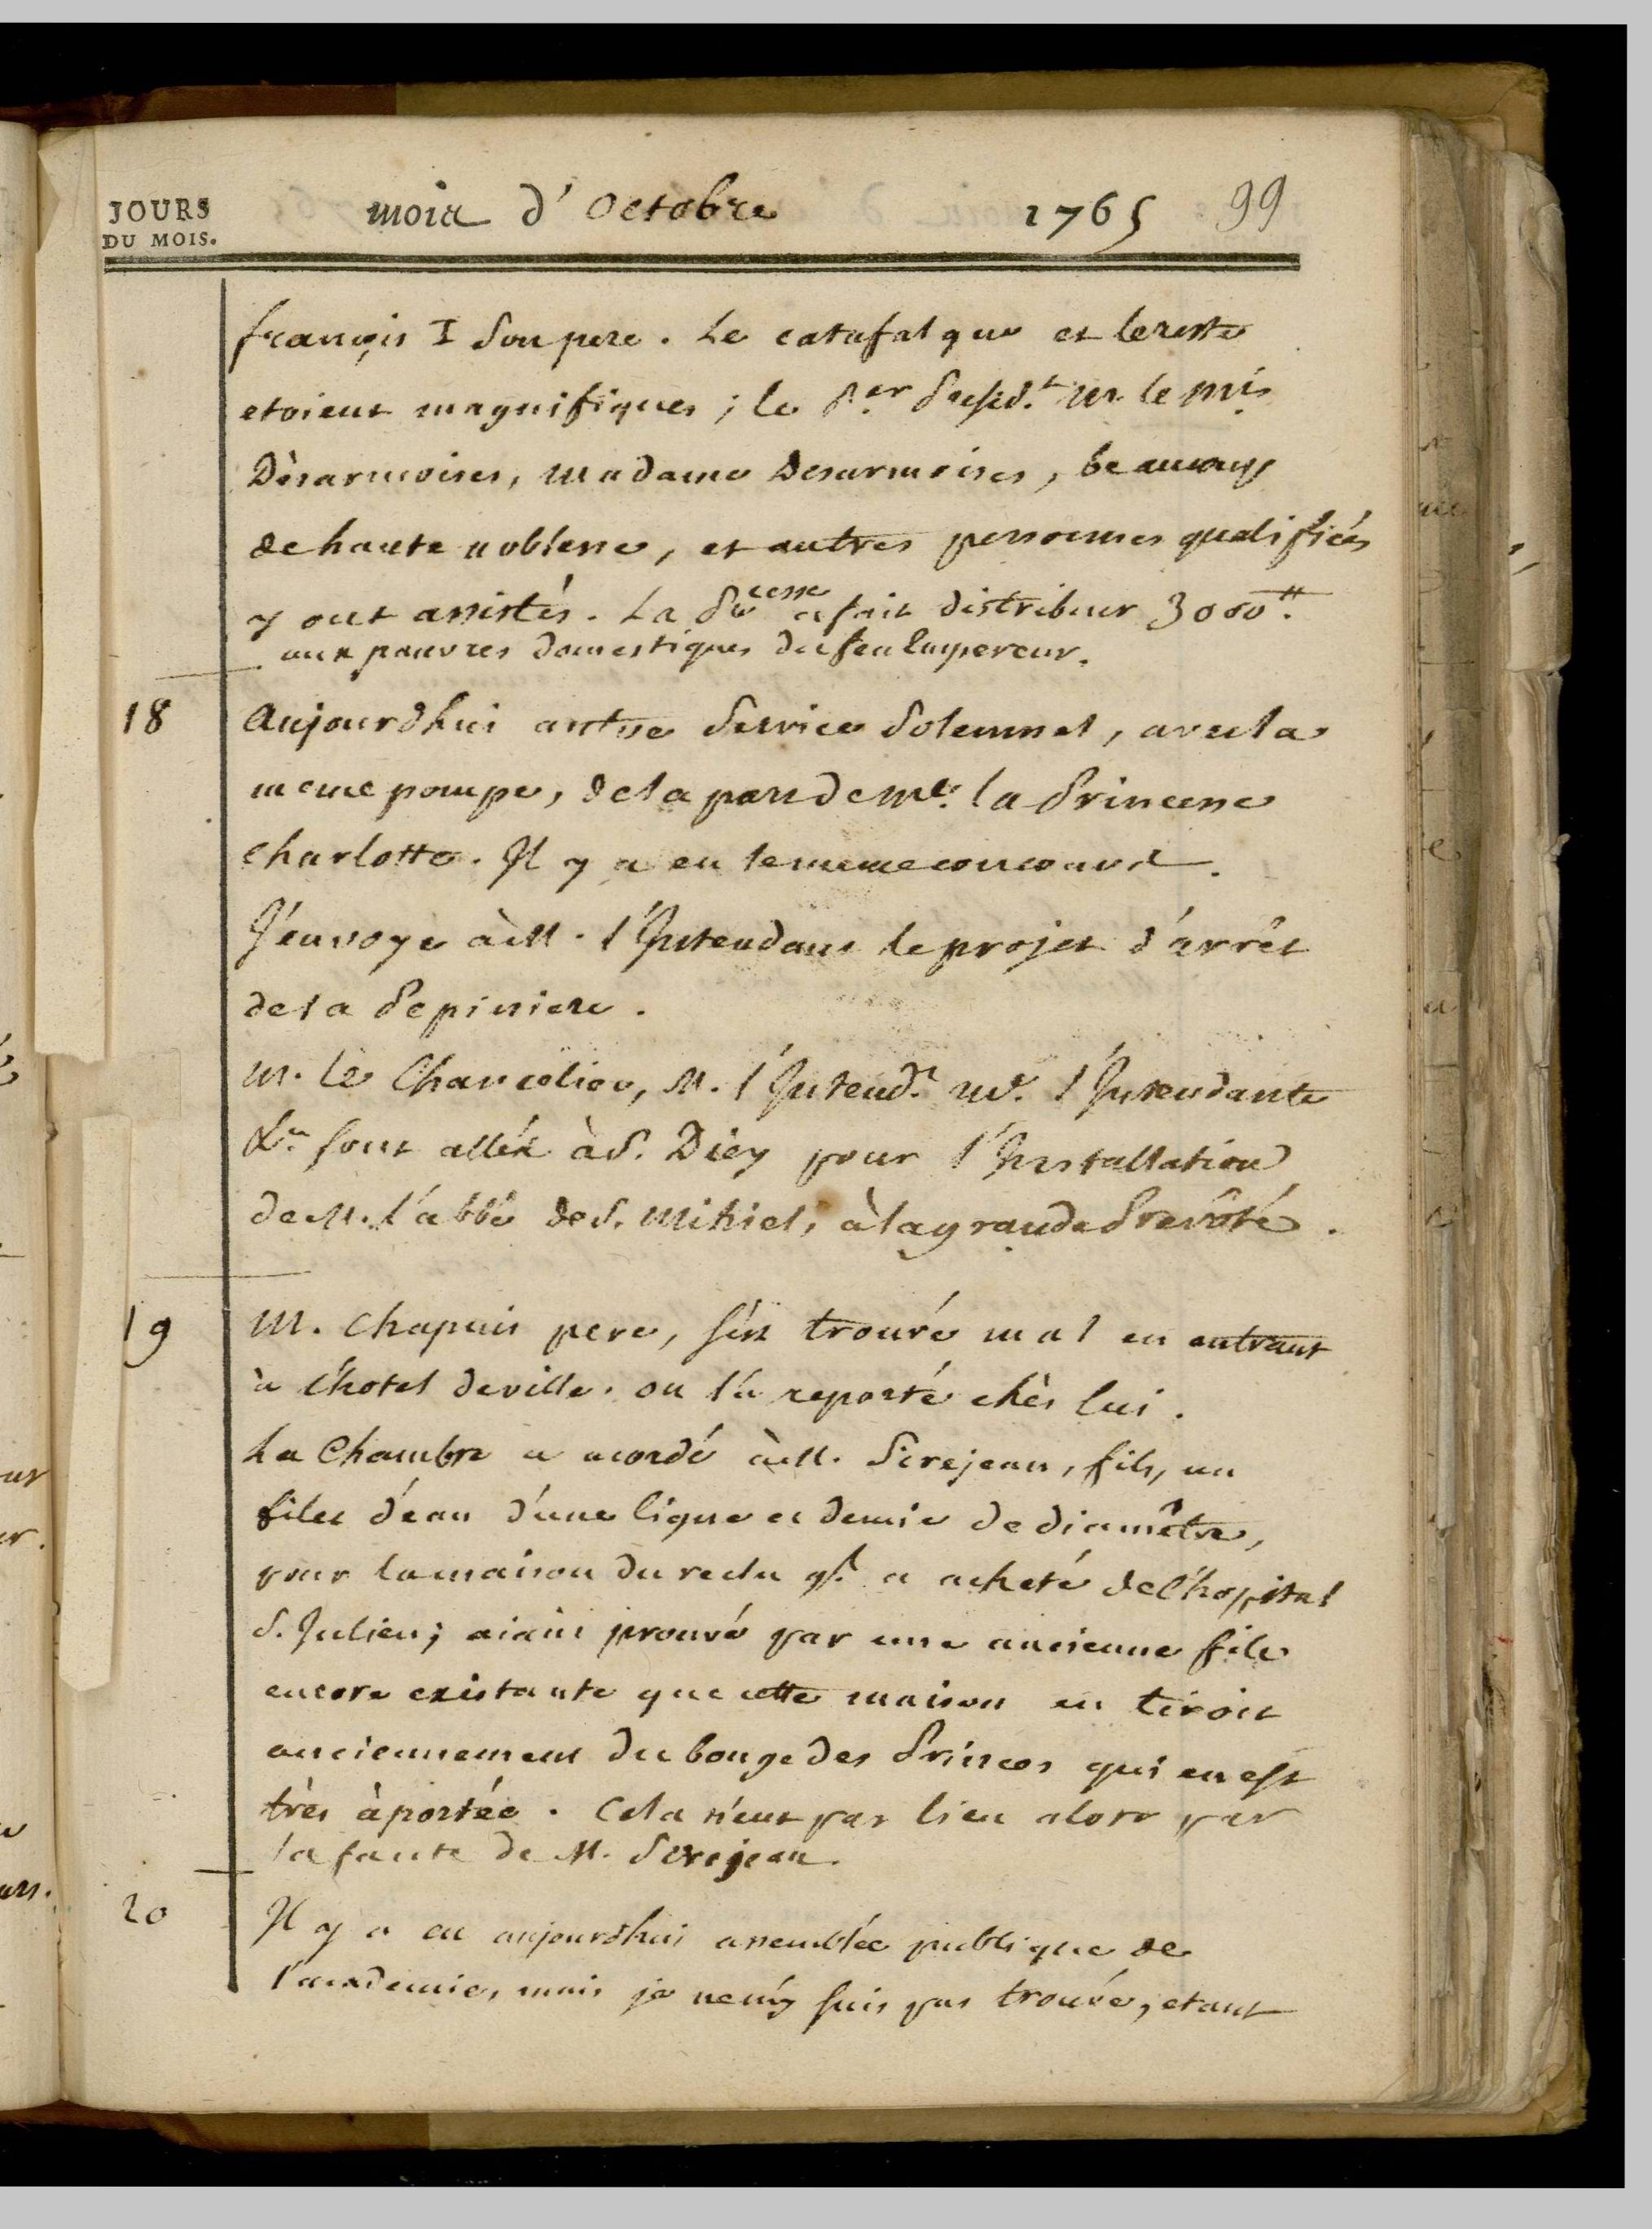 JOURS
DU MOIS.
mois d'Octobre 1765 99
françois I son pere. Le catafalque et le reste
etoient magnifiques; le Per Presidt. M. le Mis.
Désarmoises, Madame Desarmoises, beaucoup
de haute noblesse, et autres personnes qualifiées
y ont assistés. La Pcesse a fait distribuer 3000 ₶.
aux pauvres domestiques du feu Empereur.
18 Aujourdhui autre Service Solemnel, avec la
meme pompe, de la part de Me. la Princesse
Charlotte. Il y a eu le meme concours.
J'envoye à M. l'Intendant le projet d'arrêt
de la Pepiniere.
M. le Chancelier, M. l'Intendt. Me. l'Intendante
&a. sont allés à S. Diey pour l'Installation
de M. l'abbé de S. Mihiel, à la grande Prevôté.
19 M. Chapuis pere, s'est trouvé mal en entrant
à l'hotel de ville. on l'a reporté chès lui.
La Chambre a acordé à M. Sirejean, fils, un
filet d'eau d'une ligne et demie de diamêtre,
pour la maison du reclu qu'il a acheté de l'hopital
S. Julien; aiant prouvé par une ancienne file
encore existante que cette maison en tiroit
anciennement du bouge des Princes qui en est
très à portée. Cela n'eut pas lieu alors par
la faute de M. Sirejean.
20 Il y a eu aujourdhui assemblée publique de
l'academie, mais je ne m'y suis pas trouvé, etant